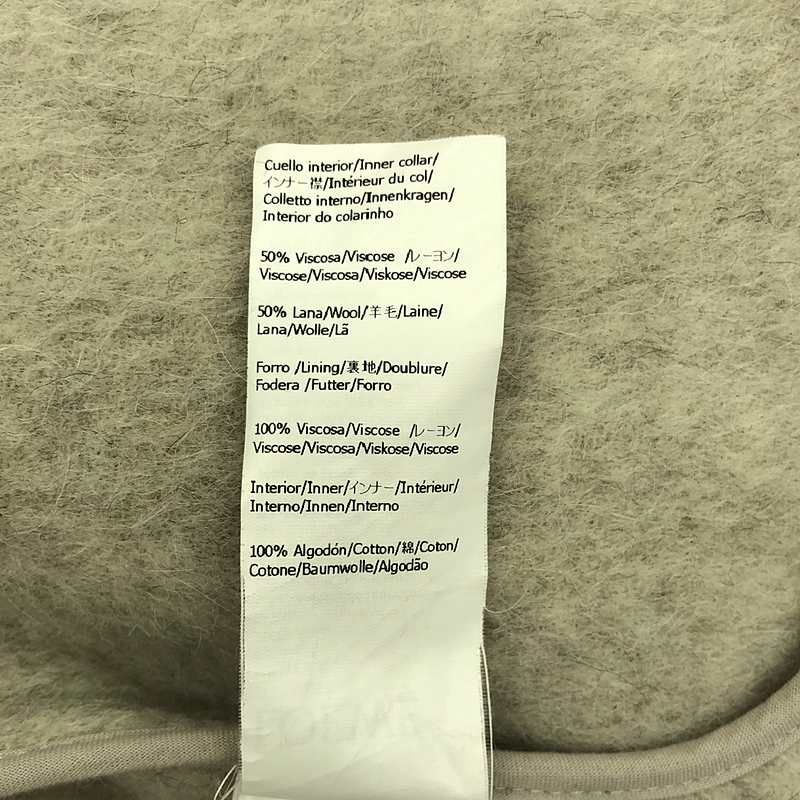 Cuello interior/Inner collar/
インナー襟/Intérieur du col/
Colletto interno/Innenkragen/
Interior do colarinho
50% Viscosa/Viscose /レーヨン/
Viscose/Viscosa/Viskose/Viscose
50% Lana/Wool/羊毛/Laine/
Lana/Wolle/Lã
Forro /Lining/裏地/Doublure/
Fodera /Futter/Forro
100% Viscosa/Viscose /レーヨン/
Viscose/Viscosa/Viskose/Viscose
Interior/Inner/インナー/Intérieur/
Interno/Innen/Interno
100% Algodón/Cotton/綿/Coton/
Cotone/Baumwolle/Algodão